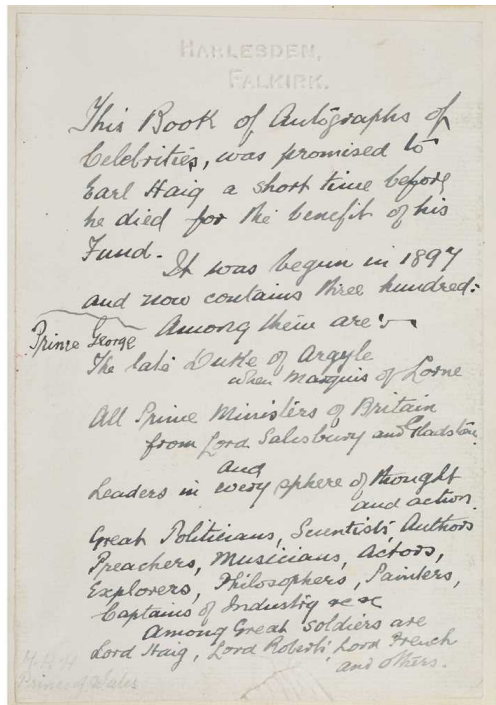 HARLESDEN,
FALKIRK.
This Book of Autographs of
Celebrities, was promised to
Earl Haig a short time before
he died for the benefit of his
Fund.
It was begun in 1897
and now contains three hundred:
Among them are:
Prince George
The late Duke of Argyle
when Marquis of Lorne
All Prime Ministers of Britain
from Lord Salisbury and Gladstone
and
Leaders in every sphere of thought
and action.
Great Politicians, Scientists, Authors
Preachers, Musicians, Actors,
Explorers, Philosophers, Painters,
Captains of Industry &c &c
Among Great Soldiers are
Lord Haig, Lord Roberts, Lord French
and others.
H.R.H
Prince of Wales